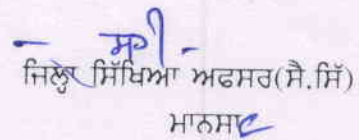 - ਸਹੀ -
ਜਿਲ੍ਹਾ ਸਿੱਖਿਆ ਅਫਸਰ(ਸੈ.ਸਿੱ)
ਮਾਨਸਾ